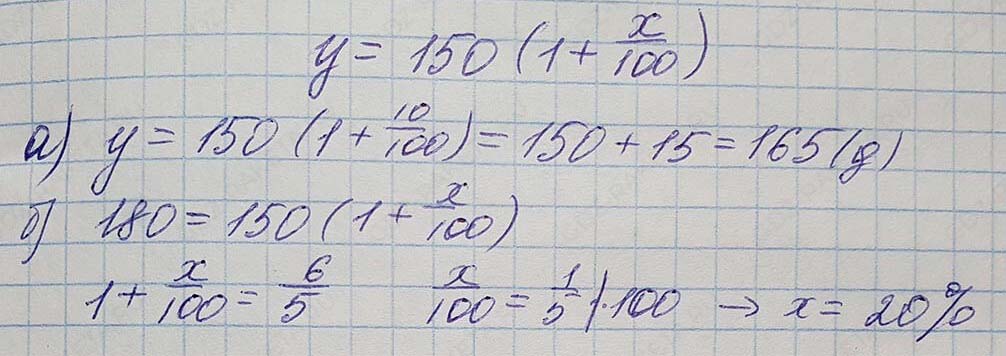 y = 150 (1 + x/100)
а) y = 150 (1 + 10/100) = 150 + 15 = 165 (g)
б) 180 = 150 (1 + x/100)
1 + x/100 = 6/5    x/100 = 1/5 |·100 → x = 20%